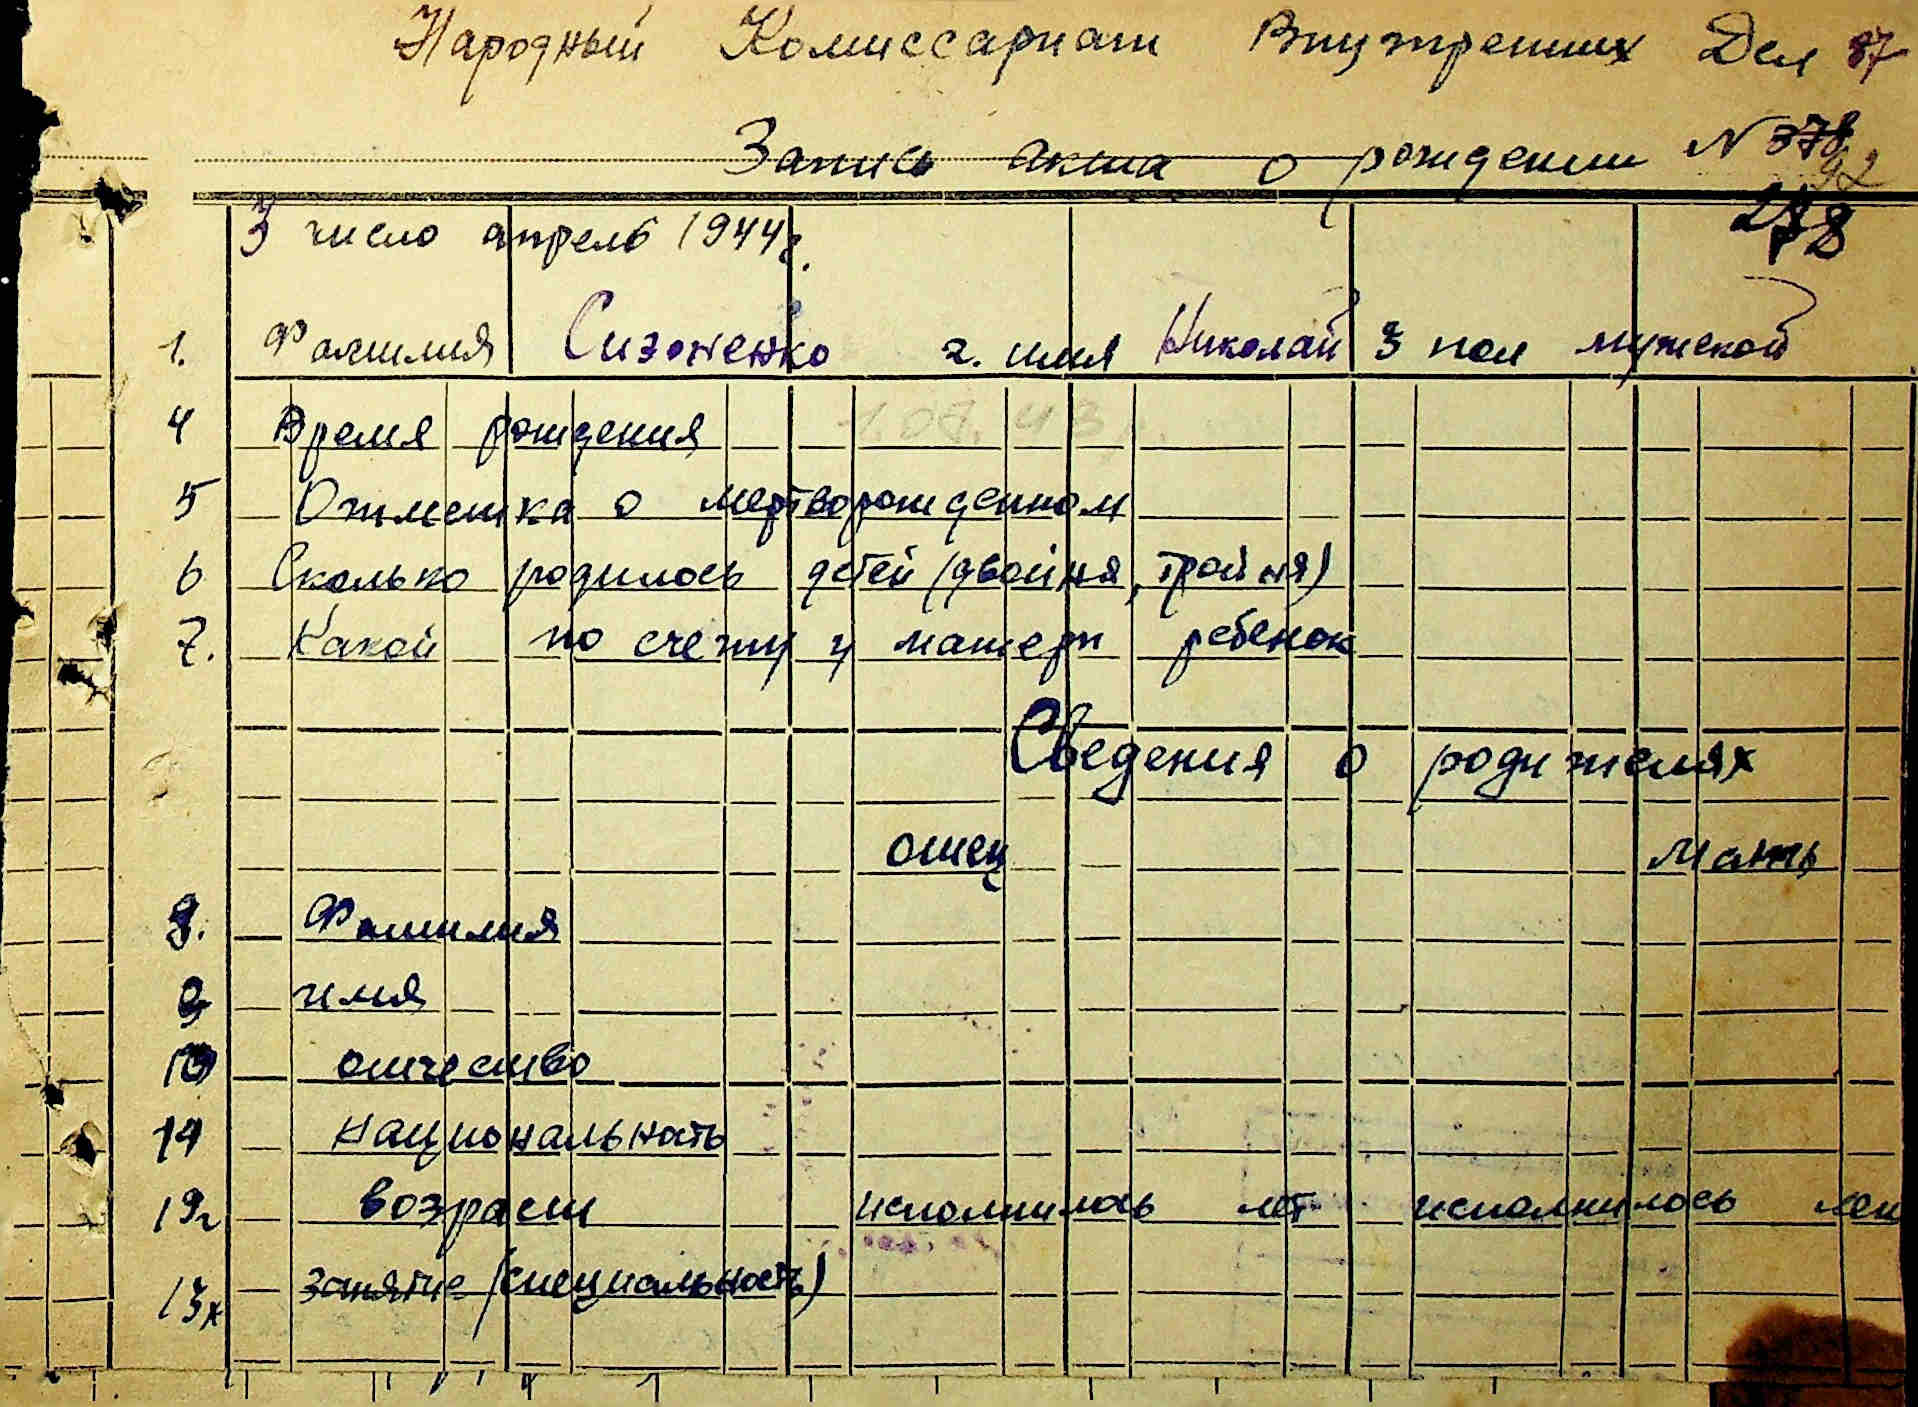 Народный Комиссариат Внутренних Дел 87
Запись акта о рождении N 378
278
3 число апрель 1944 г.
1. Фамилия Сизоненко 2. имя Николай 3 пол мужской
4 Время рождения 1.07.43
5 Отметка о мертворожденном
6 Сколько родилось детей (двойня, тройня)
7. Какой по счету у матери ребенок
Сведения о родителях
отец мать
8. Фамилия
9 имя
10 отчество
11 национальность
12 возраст исполнилось лет исполнилось лет
13 занятие (специальность)